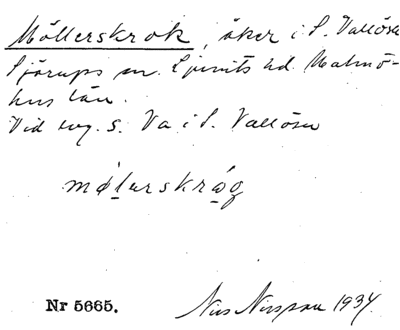 Möllerskrok, åker i S. Vallösa
Sjörups sn. Ljunits hd. Malmö-
hus län.
Vid svg. S. Va i S. Vallösa
møl̲ɐrskrå̲g
Nr 5665.
Nils Nilsson 1934